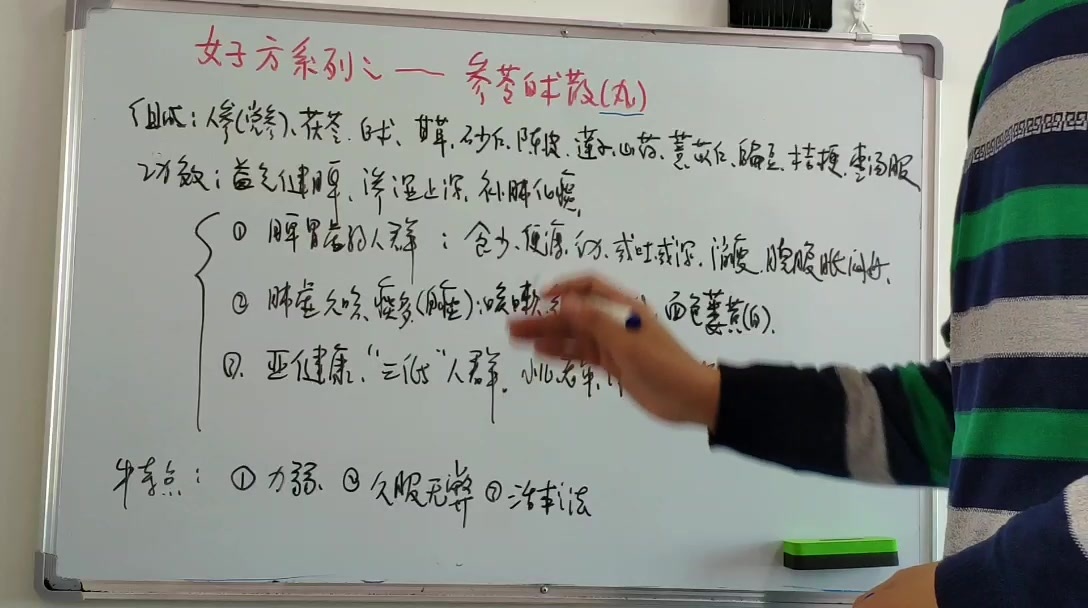 女子方系列之一 — 参苓白术散(丸)
组成：人参(党参)、茯苓、白术、甘草、砂仁、陈皮、莲子、山药、薏苡仁、扁豆、桔梗、枣汤服
功效：益气健脾、渗湿止泻、补肺化痰
① 脾胃虚弱人群：食少、便溏、或吐或泻、消瘦、脘腹胀闷
② 肺虚久咳 痰多(脾虚)：咳嗽 面色萎黄(白)
③ 亚健康、"三低"人群。小儿
特点：① 力弱、② 久服无弊 ③ 治本法